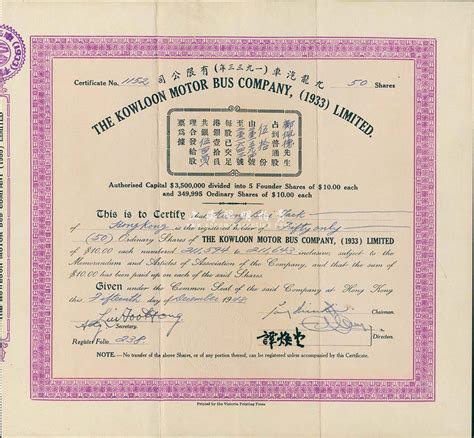 司公限有（年三三九一）車汽龍九
Certificate No. 1152
50 Shares
THE KOWLOON MOTOR BUS COMPANY, (1933) LIMITED.
先生
占到普通股
伍拾份
由
至
每股已交足
港銀壹拾員
共銀伍佰員
理合發給股
票為據
Authorised Capital $3,500,000 divided into 5 Founder Shares of $10.00 each
and 349,995 Ordinary Shares of $10.00 each
This is to Certify that
of Hongkong is the registered holder of Fifty only
(50) Ordinary Shares of THE KOWLOON MOTOR BUS COMPANY, (1933) LIMITED
of $10.00 each numbered inclusive, subject to the
Memorandum and Articles of Association of the Company, and that the sum of
$10.00 has been paid up on each of the said Shares.
Given under the Common Seal of the said Company at Hong Kong
this Fifteenth day of December 1948
Chairman.
Secretary.
Director.
Register Folio 238
NOTE.—No transfer of the above Shares, or of any portion thereof, can be registered unless accompanied by this Certificate.
Printed by the Victoria Printing Press
THE KOWLOON MOTOR BUS COMPANY (1933) LIMITED